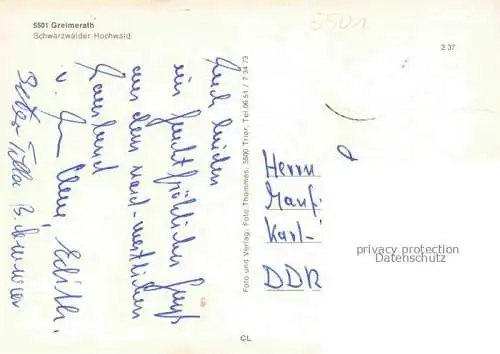 5501 Greimerath
Schwarzwälder Hochwald
5501
2 37
Euch beiden
ein feuchtfröhlicher Gruß
aus dem nord-westlichen
v.
Edith,
Peter,
Foto und Verlag: Foto Thömmes, 5500 Trier, Tel. 06 51 / 7 34 73
Herrn
Manf
Karl-
DDR
privacy protection
Datenschutz
CL